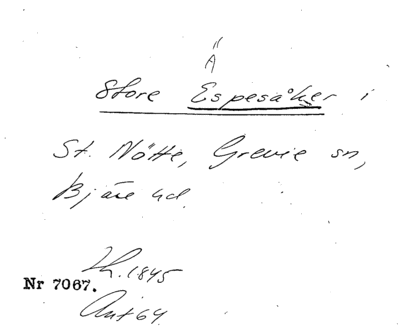 Ä
Store Espesåker i
St. Nötte, Grevie sn,
Bjäre hd.
Lh. 1845
Nr 7067.
Akt 64